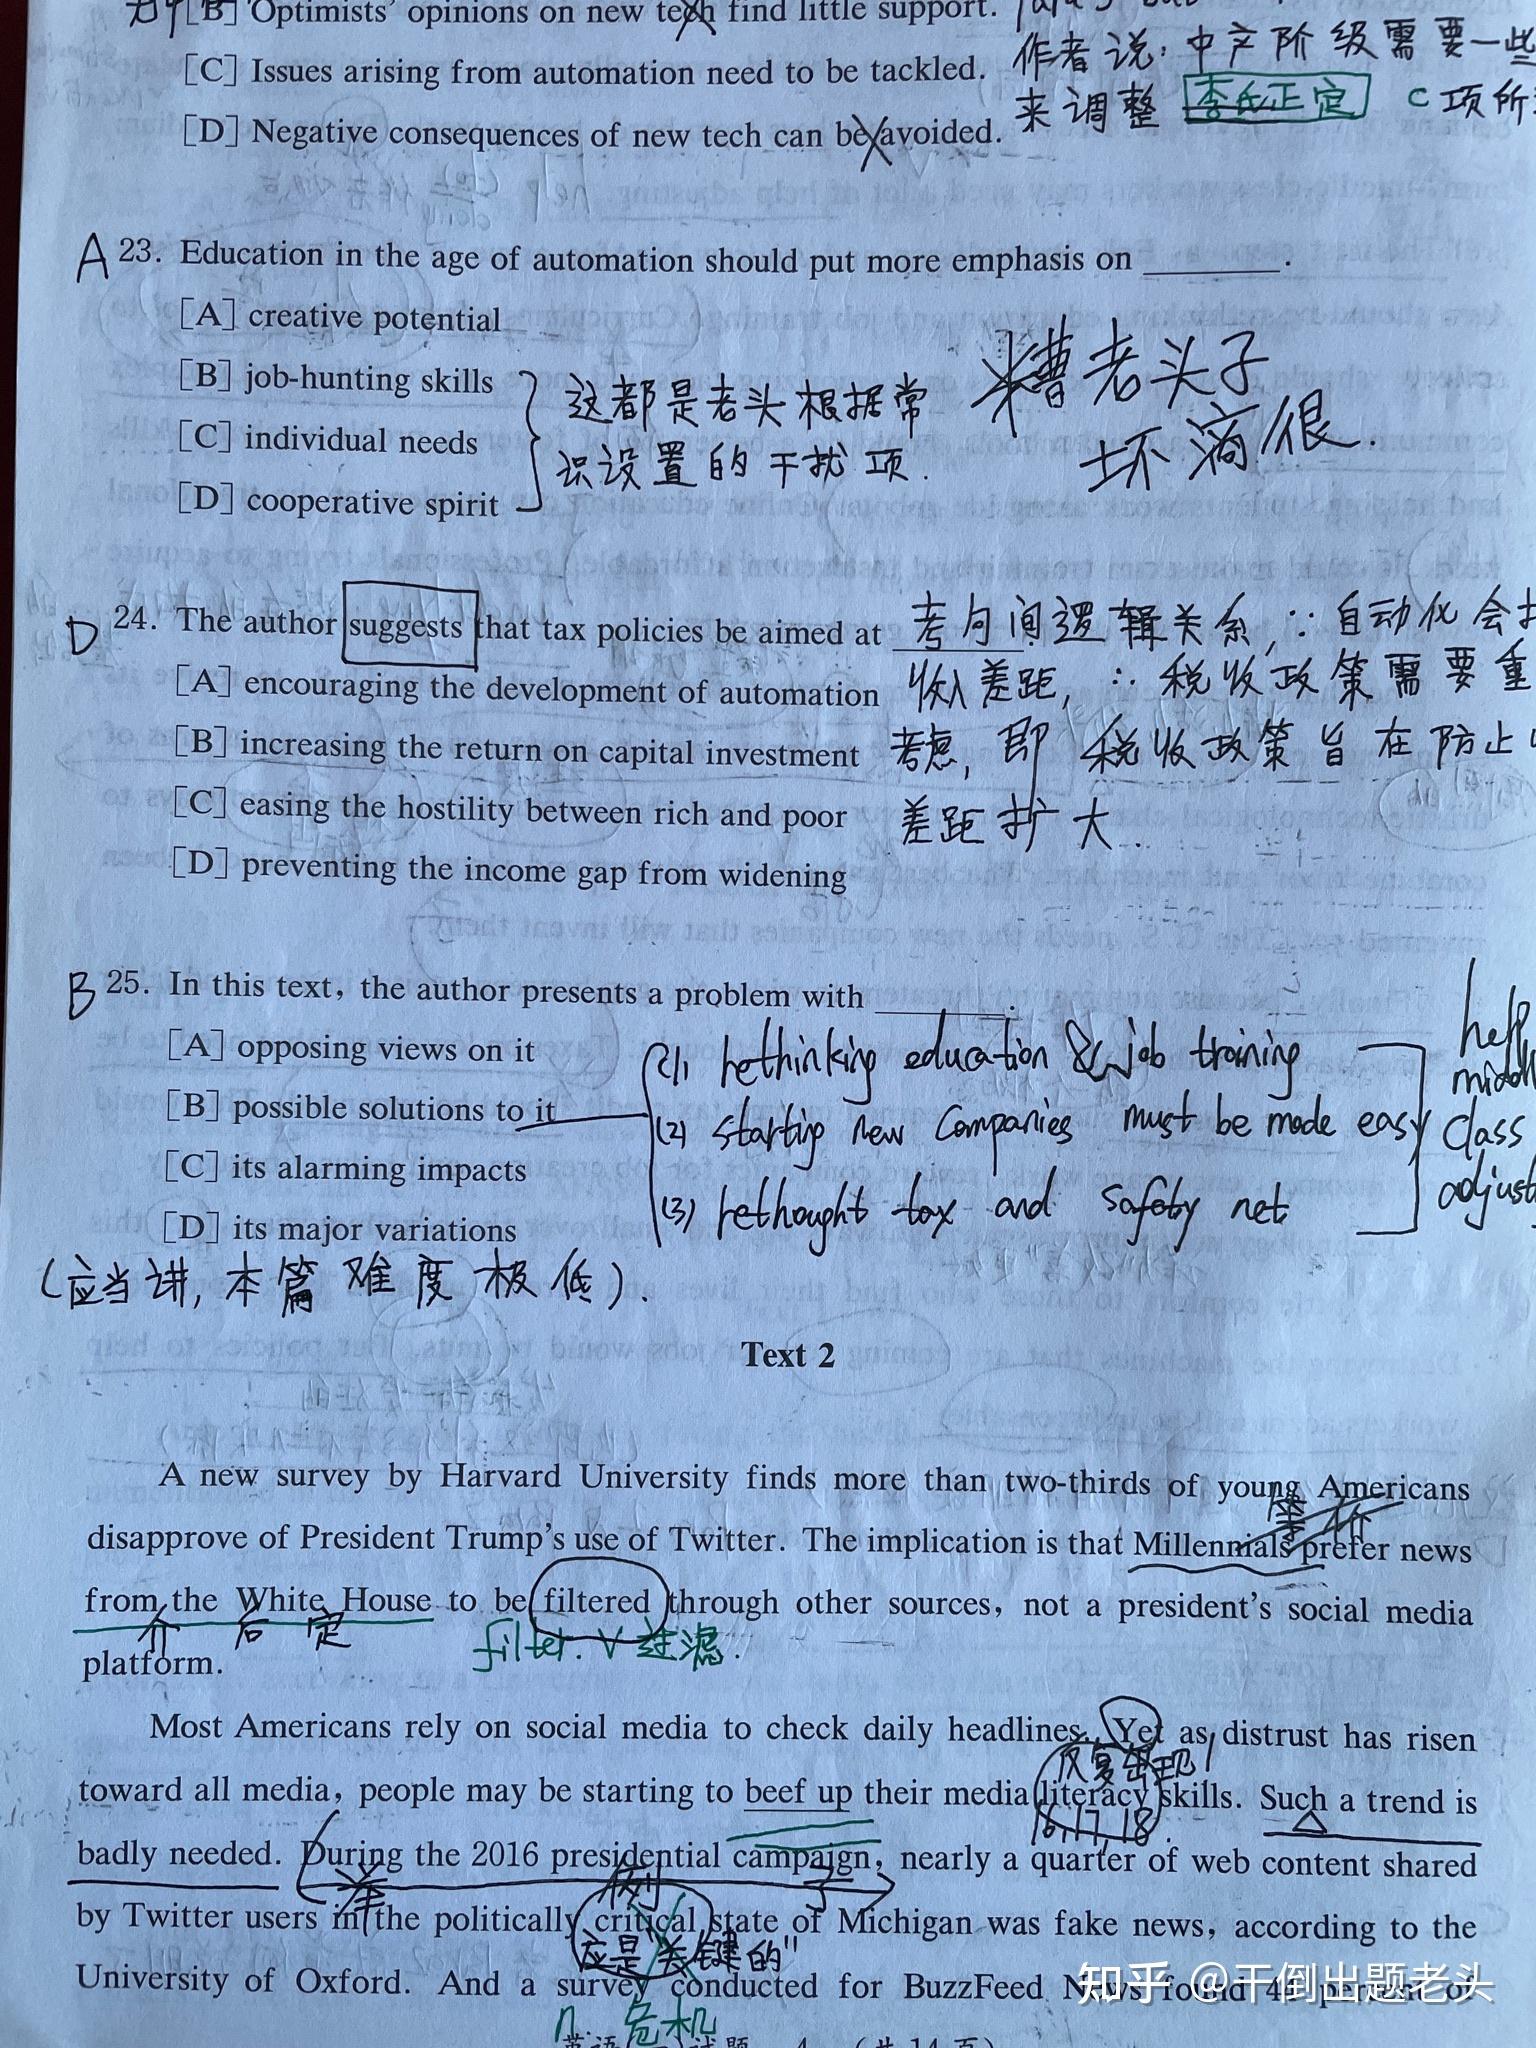 [B] Optimists' opinions on new tech find little support.
[C] Issues arising from automation need to be tackled.
作者说:中产阶级需要一些
[D] Negative consequences of new tech can be avoided.
来调整 李氏正定 C项所
A 23. Education in the age of automation should put more emphasis on ________.
[A] creative potential
[B] job-hunting skills
[C] individual needs
[D] cooperative spirit
这都是老头根据常
识设置的干扰项.
糟老头子
坏滴很.
D 24. The author suggests that tax policies be aimed at ________.
考句间逻辑关系, ∵自动化会
[A] encouraging the development of automation
收入差距, ∴税收政策需要重
[B] increasing the return on capital investment
考虑, 即税收政策旨在防止
[C] easing the hostility between rich and poor
差距扩大.
[D] preventing the income gap from widening
B 25. In this text, the author presents a problem with ________.
[A] opposing views on it
[B] possible solutions to it
[C] its alarming impacts
[D] its major variations
(1) rethinking education & job training
(2) starting new companies must be made easy
(3) rethought tax and safety net
help
middle
class
adjust
(应当讲,本篇难度极低).
Text 2
A new survey by Harvard University finds more than two-thirds of young Americans
disapprove of President Trump's use of Twitter. The implication is that Millennials prefer news
from the White House to be filtered through other sources, not a president's social media
介 后定
filter. v 过滤.
platform.
Most Americans rely on social media to check daily headlines. Yet as distrust has risen
反复出现
toward all media, people may be starting to beef up their media literacy skills. Such a trend is
16,17,18.
badly needed. During the 2016 presidential campaign, nearly a quarter of web content shared
by Twitter users in the politically critical state of Michigan was fake news, according to the
应是"关键的"
University of Oxford. And a survey conducted for BuzzFeed News found 44 percent of
n. 危机
知乎 @干倒出题老头